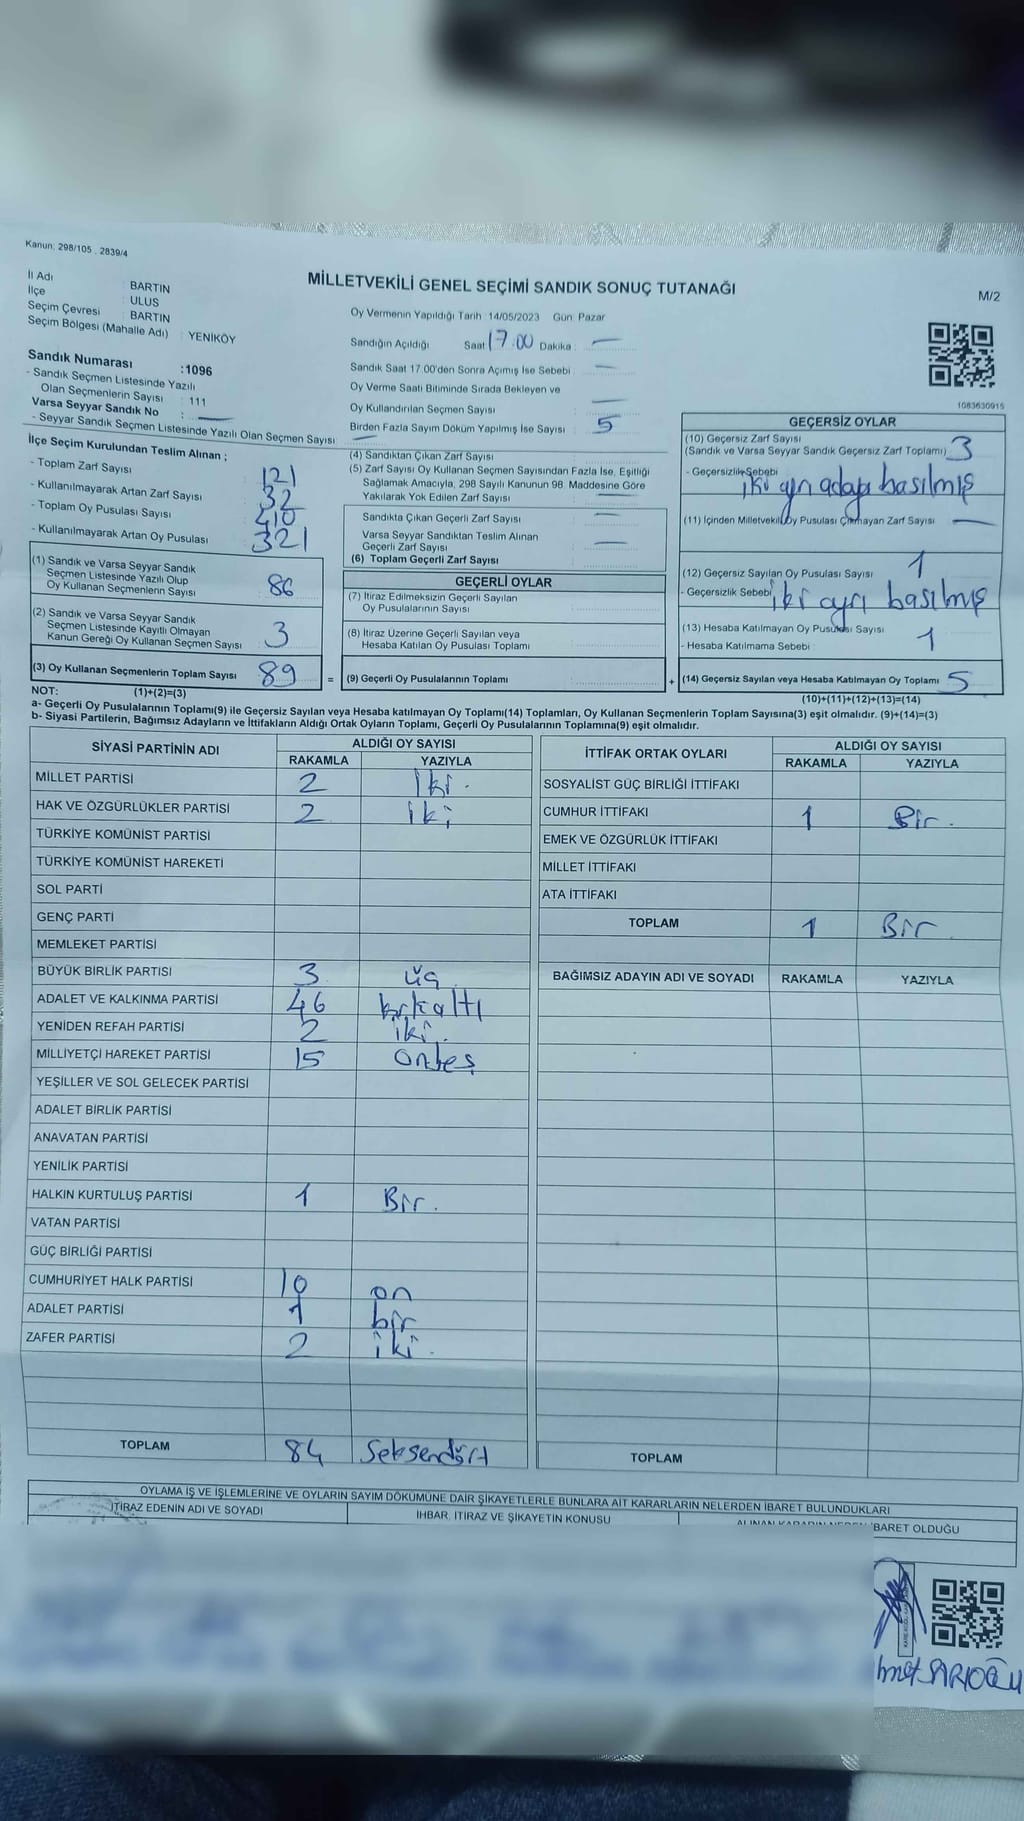 Kanun: 298/105 , 2839/4
MİLLETVEKİLİ GENEL SEÇİMİ SANDIK SONUÇ TUTANAĞI
M/2
İl Adı : BARTIN
İlçe : ULUS
Seçim Çevresi : BARTIN
Seçim Bölgesi (Mahalle Adı) : YENİKÖY
Sandık Numarası :1096
- Sandık Seçmen Listesinde Yazılı
Olan Seçmenlerin Sayısı : 111
Varsa Seyyar Sandık No : —
- Seyyar Sandık Seçmen Listesinde Yazılı Olan Seçmen Sayısı : —
Oy Vermenin Yapıldığı Tarih :14/05/2023 Gün: Pazar
Sandığın Açıldığı Saat 17:00 Dakika : —
Sandık Saat 17.00'den Sonra Açılmış İse Sebebi : —
Oy Verme Saati Bitiminde Sırada Bekleyen ve
Oy Kullandırılan Seçmen Sayısı : —
Birden Fazla Sayım Döküm Yapılmış İse Sayısı : 5
1083630915
İlçe Seçim Kurulundan Teslim Alınan ;
- Toplam Zarf Sayısı : 121
- Kullanılmayarak Artan Zarf Sayısı : 32
- Toplam Oy Pusulası Sayısı : 410
- Kullanılmayarak Artan Oy Pusulası : 321
(1) Sandık ve Varsa Seyyar Sandık
Seçmen Listesinde Yazılı Olup
Oy Kullanan Seçmenlerin Sayısı : 86
(2) Sandık ve Varsa Seyyar Sandık
Seçmen Listesinde Kayıtlı Olmayan
Kanun Gereği Oy Kullanan Seçmen Sayısı : 3
(3) Oy Kullanan Seçmenlerin Toplam Sayısı : 89
(4) Sandıktan Çıkan Zarf Sayısı :
(5) Zarf Sayısı Oy Kullanan Seçmen Sayısından Fazla İse, Eşitliği
Sağlamak Amacıyla, 298 Sayılı Kanunun 98. Maddesine Göre
Yakılarak Yok Edilen Zarf Sayısı : —
Sandıkta Çıkan Geçerli Zarf Sayısı : —
Varsa Seyyar Sandıktan Teslim Alınan
Geçerli Zarf Sayısı : —
(6) Toplam Geçerli Zarf Sayısı :
GEÇERLİ OYLAR
(7) İtiraz Edilmeksizin Geçerli Sayılan
Oy Pusulalarının Sayısı :
(8) İtiraz Üzerine Geçerli Sayılan veya
Hesaba Katılan Oy Pusulası Toplamı :
= (9) Geçerli Oy Pusulalarının Toplamı :
GEÇERSİZ OYLAR
(10) Geçersiz Zarf Sayısı
(Sandık ve Varsa Seyyar Sandık Geçersiz Zarf Toplamı) : 3
- Geçersizlik Sebebi : iki ayrı adaya basılmış
(11) İçinden Milletvekili Oy Pusulası Çıkmayan Zarf Sayısı : —
(12) Geçersiz Sayılan Oy Pusulası Sayısı : 1
- Geçersizlik Sebebi : iki ayrı basılmış
(13) Hesaba Katılmayan Oy Pusulası Sayısı : 1
- Hesaba Katılmama Sebebi :
+ (14) Geçersiz Sayılan veya Hesaba Katılmayan Oy Toplamı : 5
NOT: (1)+(2)=(3) (10)+(11)+(12)+(13)=(14)
a- Geçerli Oy Pusulalarının Toplamı(9) ile Geçersiz Sayılan veya Hesaba katılmayan Oy Toplamı(14) Toplamları, Oy Kullanan Seçmenlerin Toplam Sayısına(3) eşit olmalıdır. (9)+(14)=(3)
b- Siyasi Partilerin, Bağımsız Adayların ve İttifakların Aldığı Ortak Oyların Toplamı, Geçerli Oy Pusulalarının Toplamına(9) eşit olmalıdır.
SİYASİ PARTİNİN ADI ALDIĞI OY SAYISI
RAKAMLA YAZIYLA
MİLLET PARTİSİ 2 İki.
HAK VE ÖZGÜRLÜKLER PARTİSİ 2 iki
TÜRKİYE KOMÜNİST PARTİSİ
TÜRKİYE KOMÜNİST HAREKETİ
SOL PARTİ
GENÇ PARTİ
MEMLEKET PARTİSİ
BÜYÜK BİRLİK PARTİSİ 3 üç
ADALET VE KALKINMA PARTİSİ 46 kırkaltı
YENİDEN REFAH PARTİSİ 2 iki.
MİLLİYETÇİ HAREKET PARTİSİ 15 onbeş
YEŞİLLER VE SOL GELECEK PARTİSİ
ADALET BİRLİK PARTİSİ
ANAVATAN PARTİSİ
YENİLİK PARTİSİ
HALKIN KURTULUŞ PARTİSİ 1 Bir.
VATAN PARTİSİ
GÜÇ BİRLİĞİ PARTİSİ
CUMHURİYET HALK PARTİSİ 10 on
ADALET PARTİSİ 1 bir
ZAFER PARTİSİ 2 iki.
TOPLAM 84 Seksendört
İTTİFAK ORTAK OYLARI ALDIĞI OY SAYISI
RAKAMLA YAZIYLA
SOSYALİST GÜÇ BİRLİĞİ İTTİFAKI
CUMHUR İTTİFAKI 1 Bir.
EMEK VE ÖZGÜRLÜK İTTİFAKI
MİLLET İTTİFAKI
ATA İTTİFAKI
TOPLAM 1 Bir
BAĞIMSIZ ADAYIN ADI VE SOYADI RAKAMLA YAZIYLA
TOPLAM
OYLAMA İŞ VE İŞLEMLERİNE VE OYLARIN SAYIM DÖKÜMÜNE DAİR ŞİKAYETLERLE BUNLARA AİT KARARLARIN NELERDEN İBARET BULUNDUKLARI
İTİRAZ EDENİN ADI VE SOYADI
İHBAR, İTİRAZ VE ŞİKAYETİN KONUSU
ALINAN KARARIN NEDEN İBARET OLDUĞU